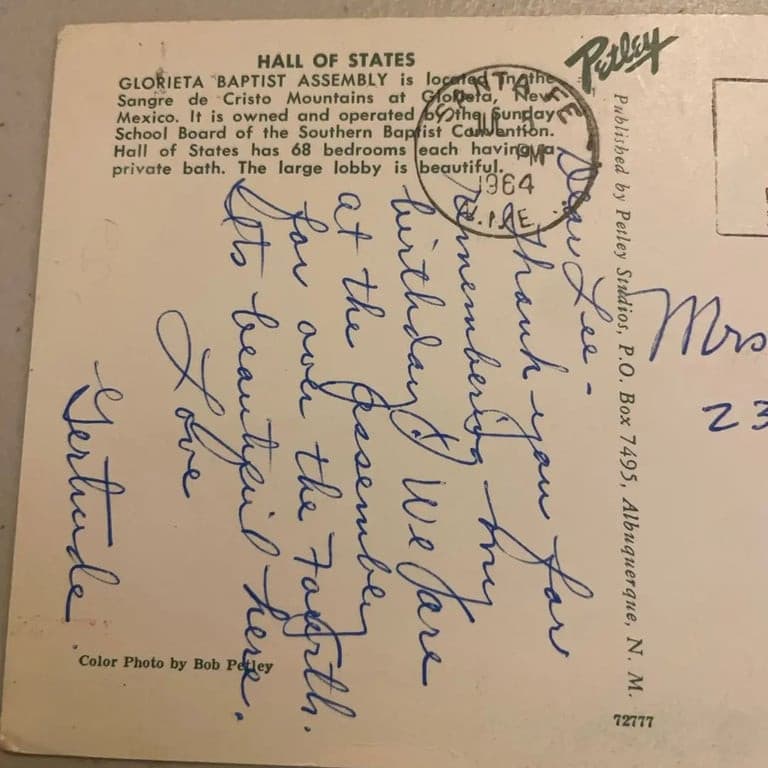 HALL OF STATES
GLORIETA BAPTIST ASSEMBLY is located in the
Sangre de Cristo Mountains at Glorieta, New
Mexico. It is owned and operated by the Sunday
School Board of the Southern Baptist Convention.
Hall of States has 68 bedrooms each having a
private bath. The large lobby is beautiful.
Petley
SANTA FE
PM
1964
N. MEX.
Dear Lee-
Thank you for
remembering my
birthday! We are
at the Assembly
for over the Fourth.
Its beautiful here.
Love
Gertrude
Color Photo by Bob Petley
Published by Petley Studios, P.O. Box 7495, Albuquerque, N. M.
72777
Mrs
23